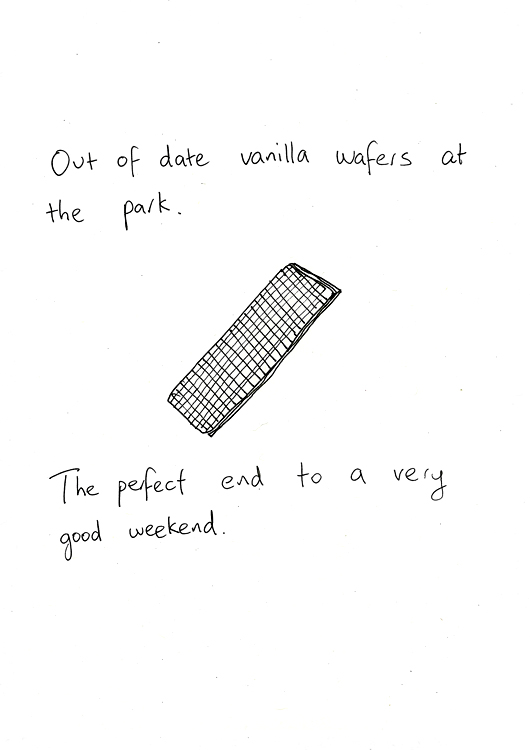 Out of date vanilla wafers at
the park.
The pefect end to a very
good weekend.